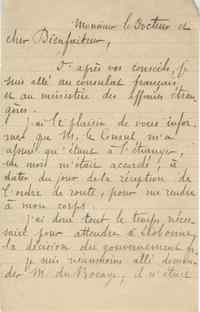 Monsieur le Docteur et
cher Bienfaiteur,
D'après vos conseils, je
suis allé au consulat français
et au ministère des affaires étran
gères.
J'ai le plaisir de vous infor
mer que M. le Consul m'a
assuré qu'étant à l'étranger,
un mois m'était accordé, à
dater du jour de la réception de
l'ordre de route, pour me rendre
à mon corps.
J'ai donc tout le temps néces
saire pour attendre à Lisbonne
la décision du gouvernement fr
je suis néanmoins allé deman
der M. du Bocage, il n'était